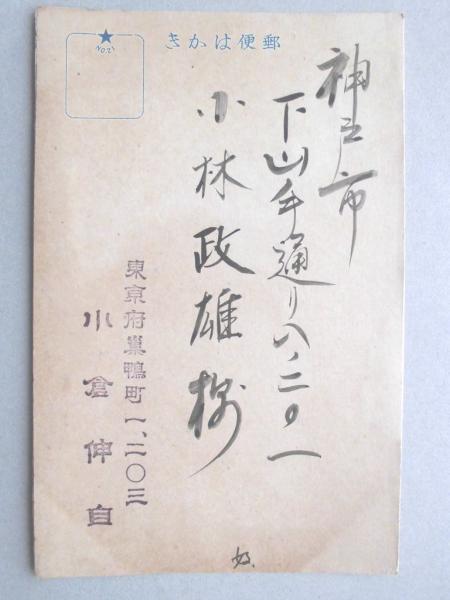 郵便はかき
No.21
神戸市
下山手通り八ノ二〇一
小林政雄様
東京府巣鴨町一、二〇三
小倉伸自